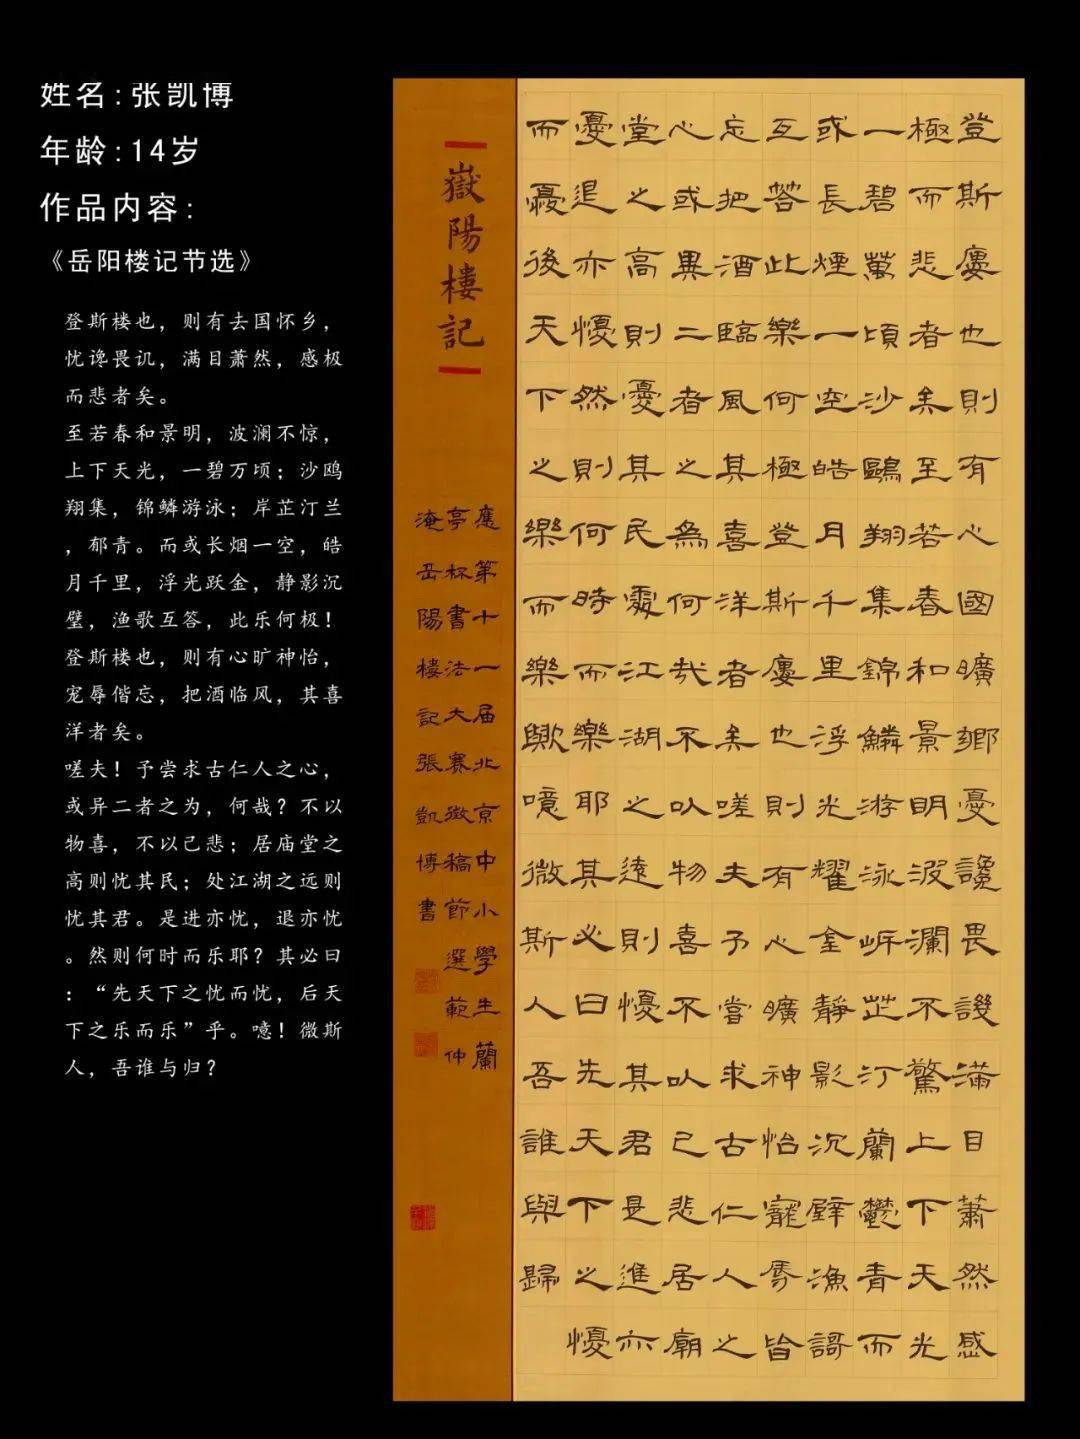 姓名:张凯博
年龄:14岁
作品内容:
《岳阳楼记节选》
登斯楼也，则有去国怀乡，
忧谗畏讥，满目萧然，感极
而悲者矣。
至若春和景明，波澜不惊，
上下天光，一碧万顷；沙鸥
翔集，锦鳞游泳；岸芷汀兰
，郁青。而或长烟一空，皓
月千里，浮光跃金，静影沉
璧，渔歌互答，此乐何极！
登斯楼也，则有心旷神怡，
宠辱偕忘，把酒临风，其喜
洋者矣。
嗟夫！予尝求古仁人之心，
或异二者之为，何哉？不以
物喜，不以己悲；居庙堂之
高则忧其民；处江湖之远则
忧其君。是进亦忧，退亦忧
。然则何时而乐耶？其必曰
：“先天下之忧而忧，后天
下之乐而乐”乎。噫！微斯
人，吾谁与归？
登斯廔也則有心國曠鄉憂讒畏譏滿目蕭然感
極而悲者矣至若春和景明波瀾不驚上下天光
一碧萬頃沙鷗翔集錦鱗游泳岸芷汀蘭鬱青而
或長煙一空皓月千里浮光耀金靜影沉璧漁謌
互答此樂何極登斯廔也則有心曠神怡寵辱皆
忘把酒臨風其喜洋者矣嗟夫予嘗求古仁人之
心或異二者之為何哉不以物喜不以己悲居廟
堂之高則憂其民處江湖之遠則懮其君是進亦
憂退亦懮然則何時而樂耶其必曰先天下之懮
而憂後天下之樂而樂歟噫微斯人吾誰與歸
嶽陽樓記
應第十一届北京中小學生蘭
亭杯書法大賽徵稿節選範仲
淹岳陽樓記張凱博書